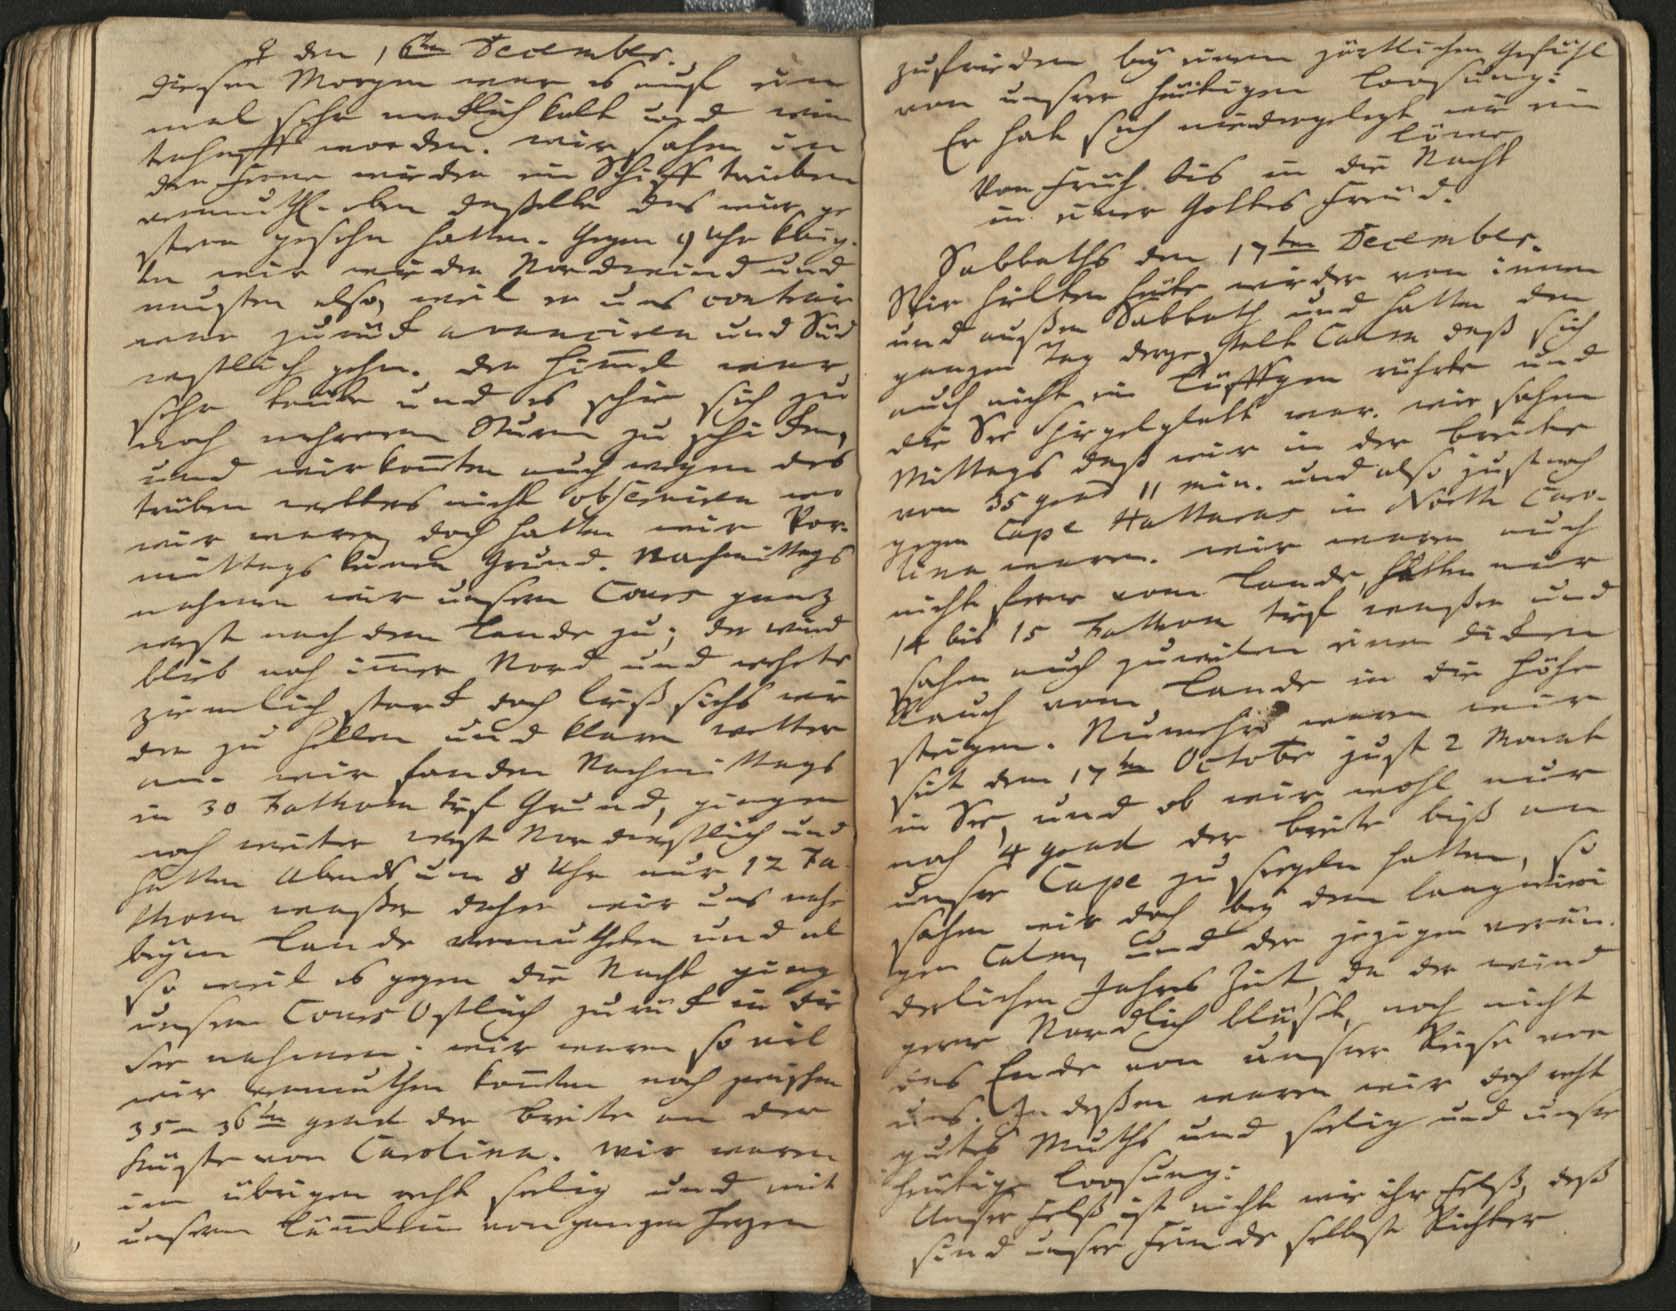 ♀ den 16ten December.
diesen Morgen war es auf ein
mal sehr merklich kalt und win
terhafft worden. wir sahen in
der Ferne wieder ein Schiff treiben
vermuthl. eben dasselbe das wir ge
stern gesehn hatten. Gegen 9 Uhr krieg-
ten wir wieder Nordwind und
mußten also, weil er uns contrair
war zurück avanciren und Süd
westlich gehn. der Himmel war
sehr trübe und es schien sich zu
noch mehrerm Sturm zu schicken,
und wir konnten auch wegen des
trüben wetters nicht observiren wo
wir waren, doch hatten wir Vor-
mittags keinen Grund. Nachmittags
nahmen wir unsern Cours ganz
west nach dem Lande zu; der wind
blieb noch immer Nord und wehete
ziemlich starck doch ließ sichs wie
der zu hellen und klaren wetter
an. wir fanden Nachmittags
in 30 Fathom tief Grund, gingen
noch weiter west Nordwestlich und
hatten Abends um 8 Uhr nur 12 Fa-
thom waßer daher wir uns nahe
beym Lande vermutheten und al
so weil es gegen die Nacht ging
unsern Cours Ostlich zurück in die
See nahmen. wir waren so viel
wir vermuthen konnten noch zwischen
35 - 36ten grad der Breite an der
Küste von Carolina. wir waren
im übrigen recht seelig und mit
unserm Lämmlein von ganzen Herzen
zufrieden bey einem zärtlichen Gefühl
von unsrer heutigen Loosung:
Er hat sich niedergelegt wie ein
Löwe,
Von Früh bis in die Nacht
in einer Gottes Freud.
Sabbaths den 17ten December.
Wir hielten heute wieder von innen
und außen Sabbath und hatten den
ganzen Tag dergestalt Calm daß sich
auch nicht ein Lüfftgen rührte und
die See spiegelglatt war. wir sahen
Mittags daß wir in der Breite
von 35 grad 11 min. und also just noch
gegen Cape Hatteras in North Caro-
lina waren. wir waren auch
nicht fern vom Lande, hatten nur
14 bis 15 Fathom tief waßer und
sahen auch zuweilen einen dicken
Rauch vom Lande in die Höhe
steigen. Nunmehro waren wir
seit dem 17ten Octobr just 2 Monat
in See, und ob wir wohl nur
noch 4 grad der Breite biß an
unser Cape zu segeln hatten, so
sahen wir doch bey dem langwieri
gen Calm, und der jezigen verän-
derlichen Jahrs Zeit, da der wind
gern Nordlich bläst, noch nicht
das Ende von unsrer Reise vor
uns. In deßen waren wir doch recht
gutes Muths und seelig und unsre
heutige Loosung:
Unser Felß ist nicht wie ihr Felß, deß
sind unsre Feinde selbst Richter